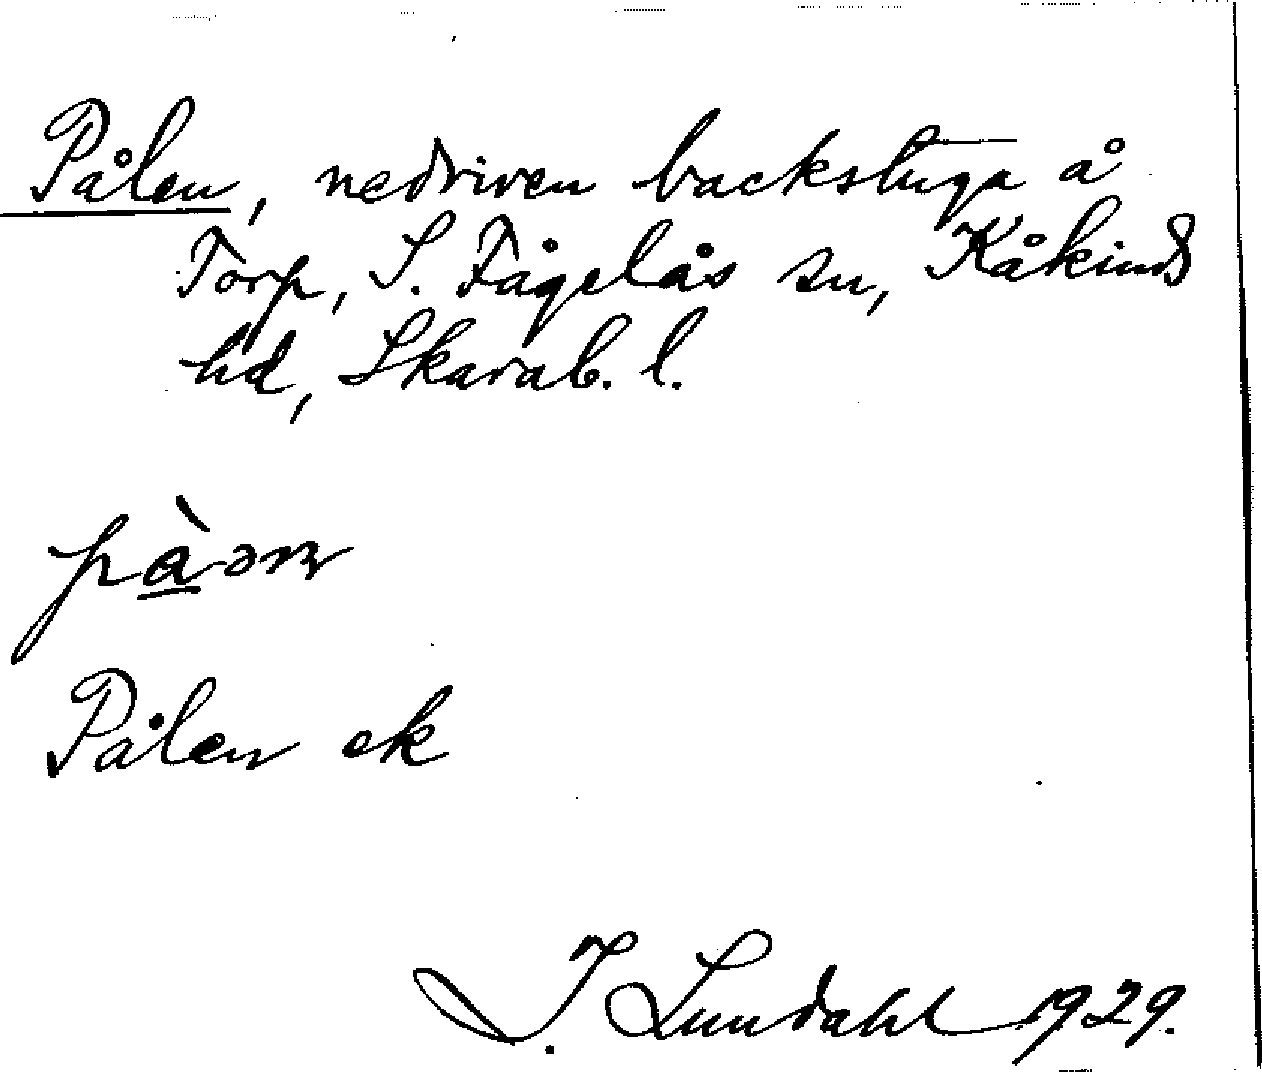 Pålen, nedriven backstuga å
Torp, S. Fågelås sn, Kåkinds
hd, Skarab. l.
Pålen ek
I. Lundahl 1929.